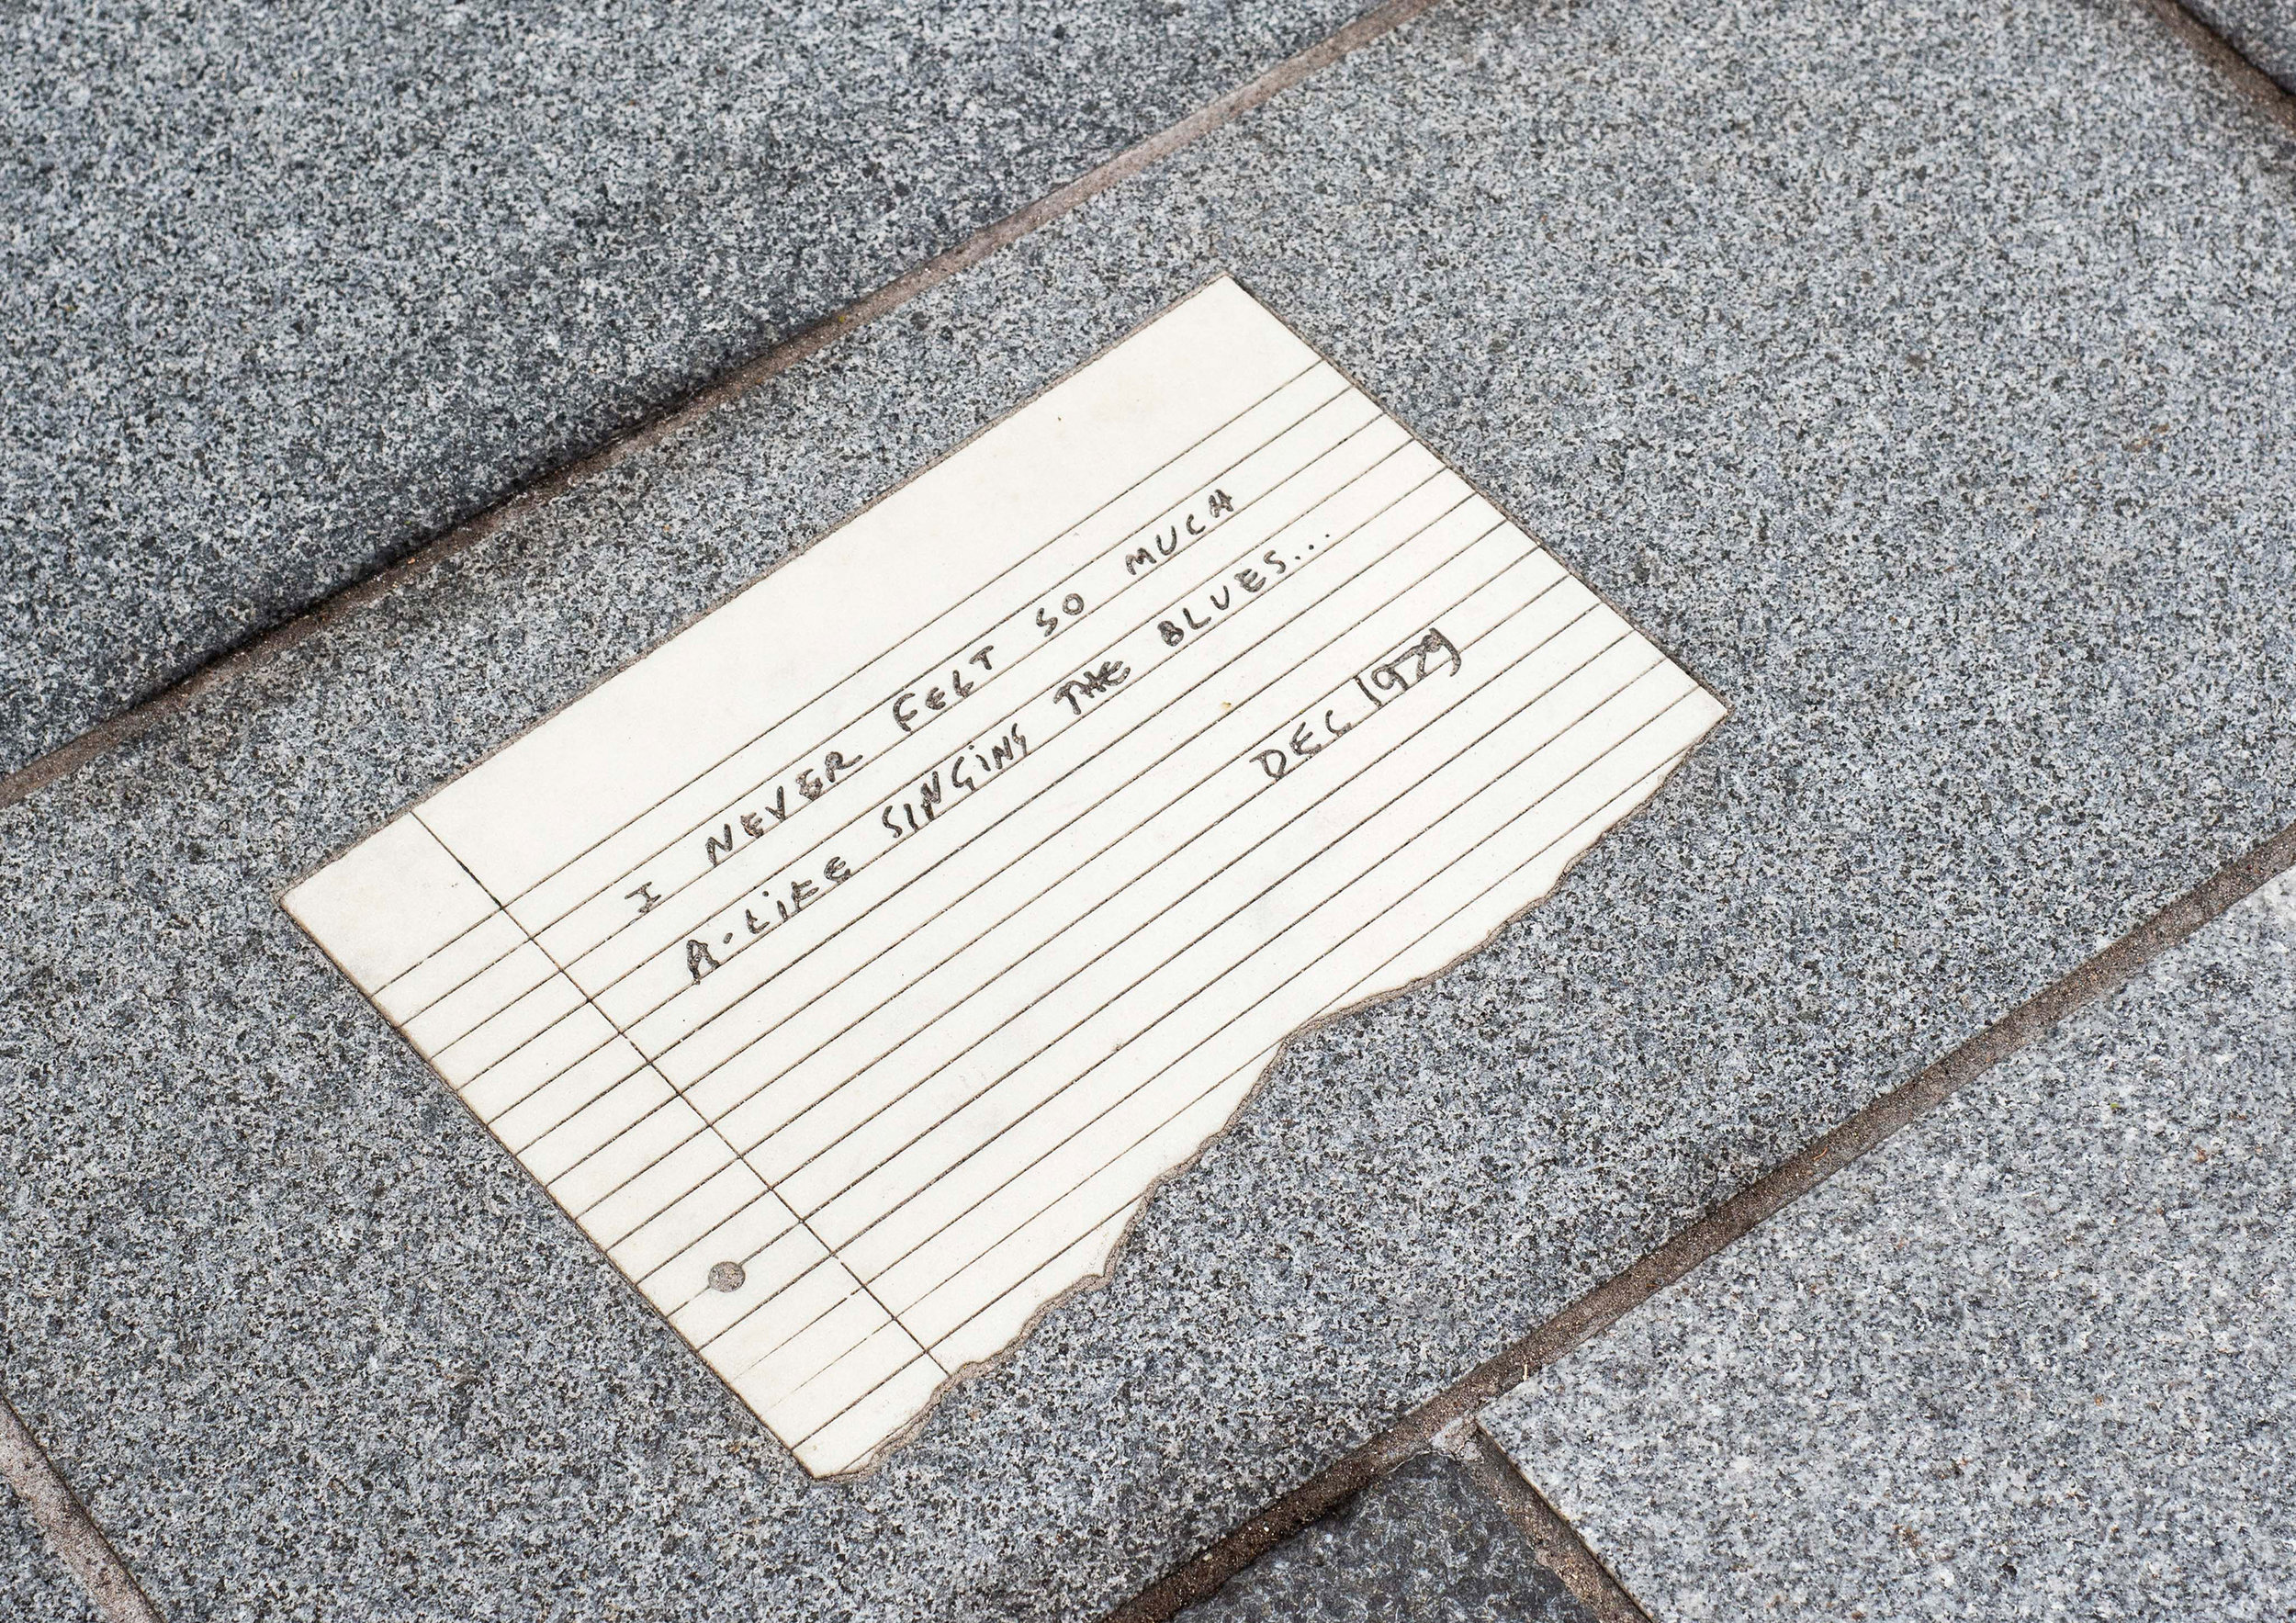 I NEVER FELT SO MUCH
A-LIKE SINGING THE BLUES...
DEC 1979